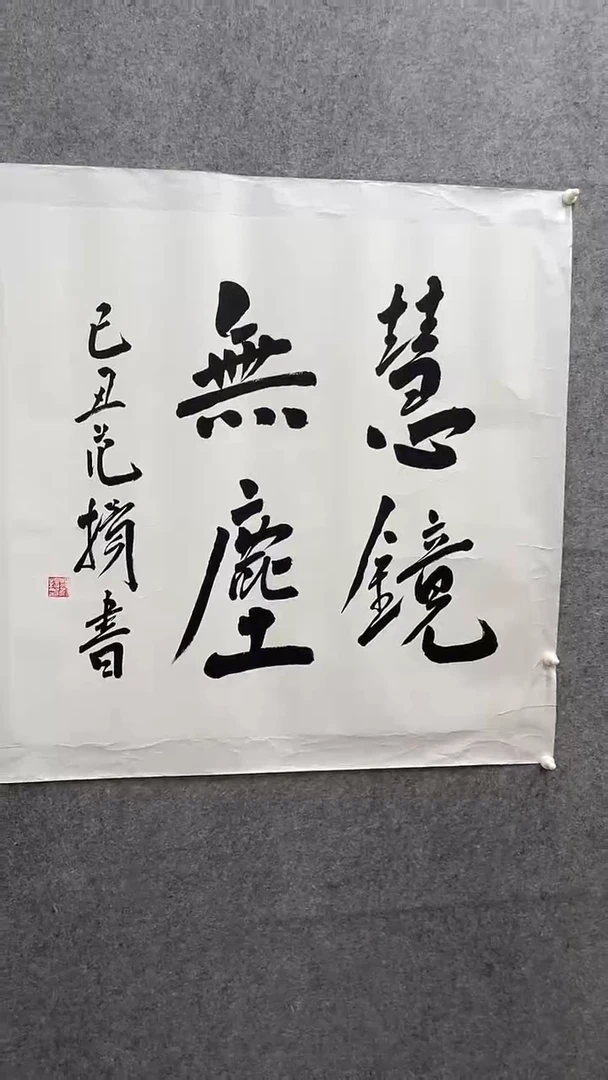 慧鏡
無塵
己丑范擶書